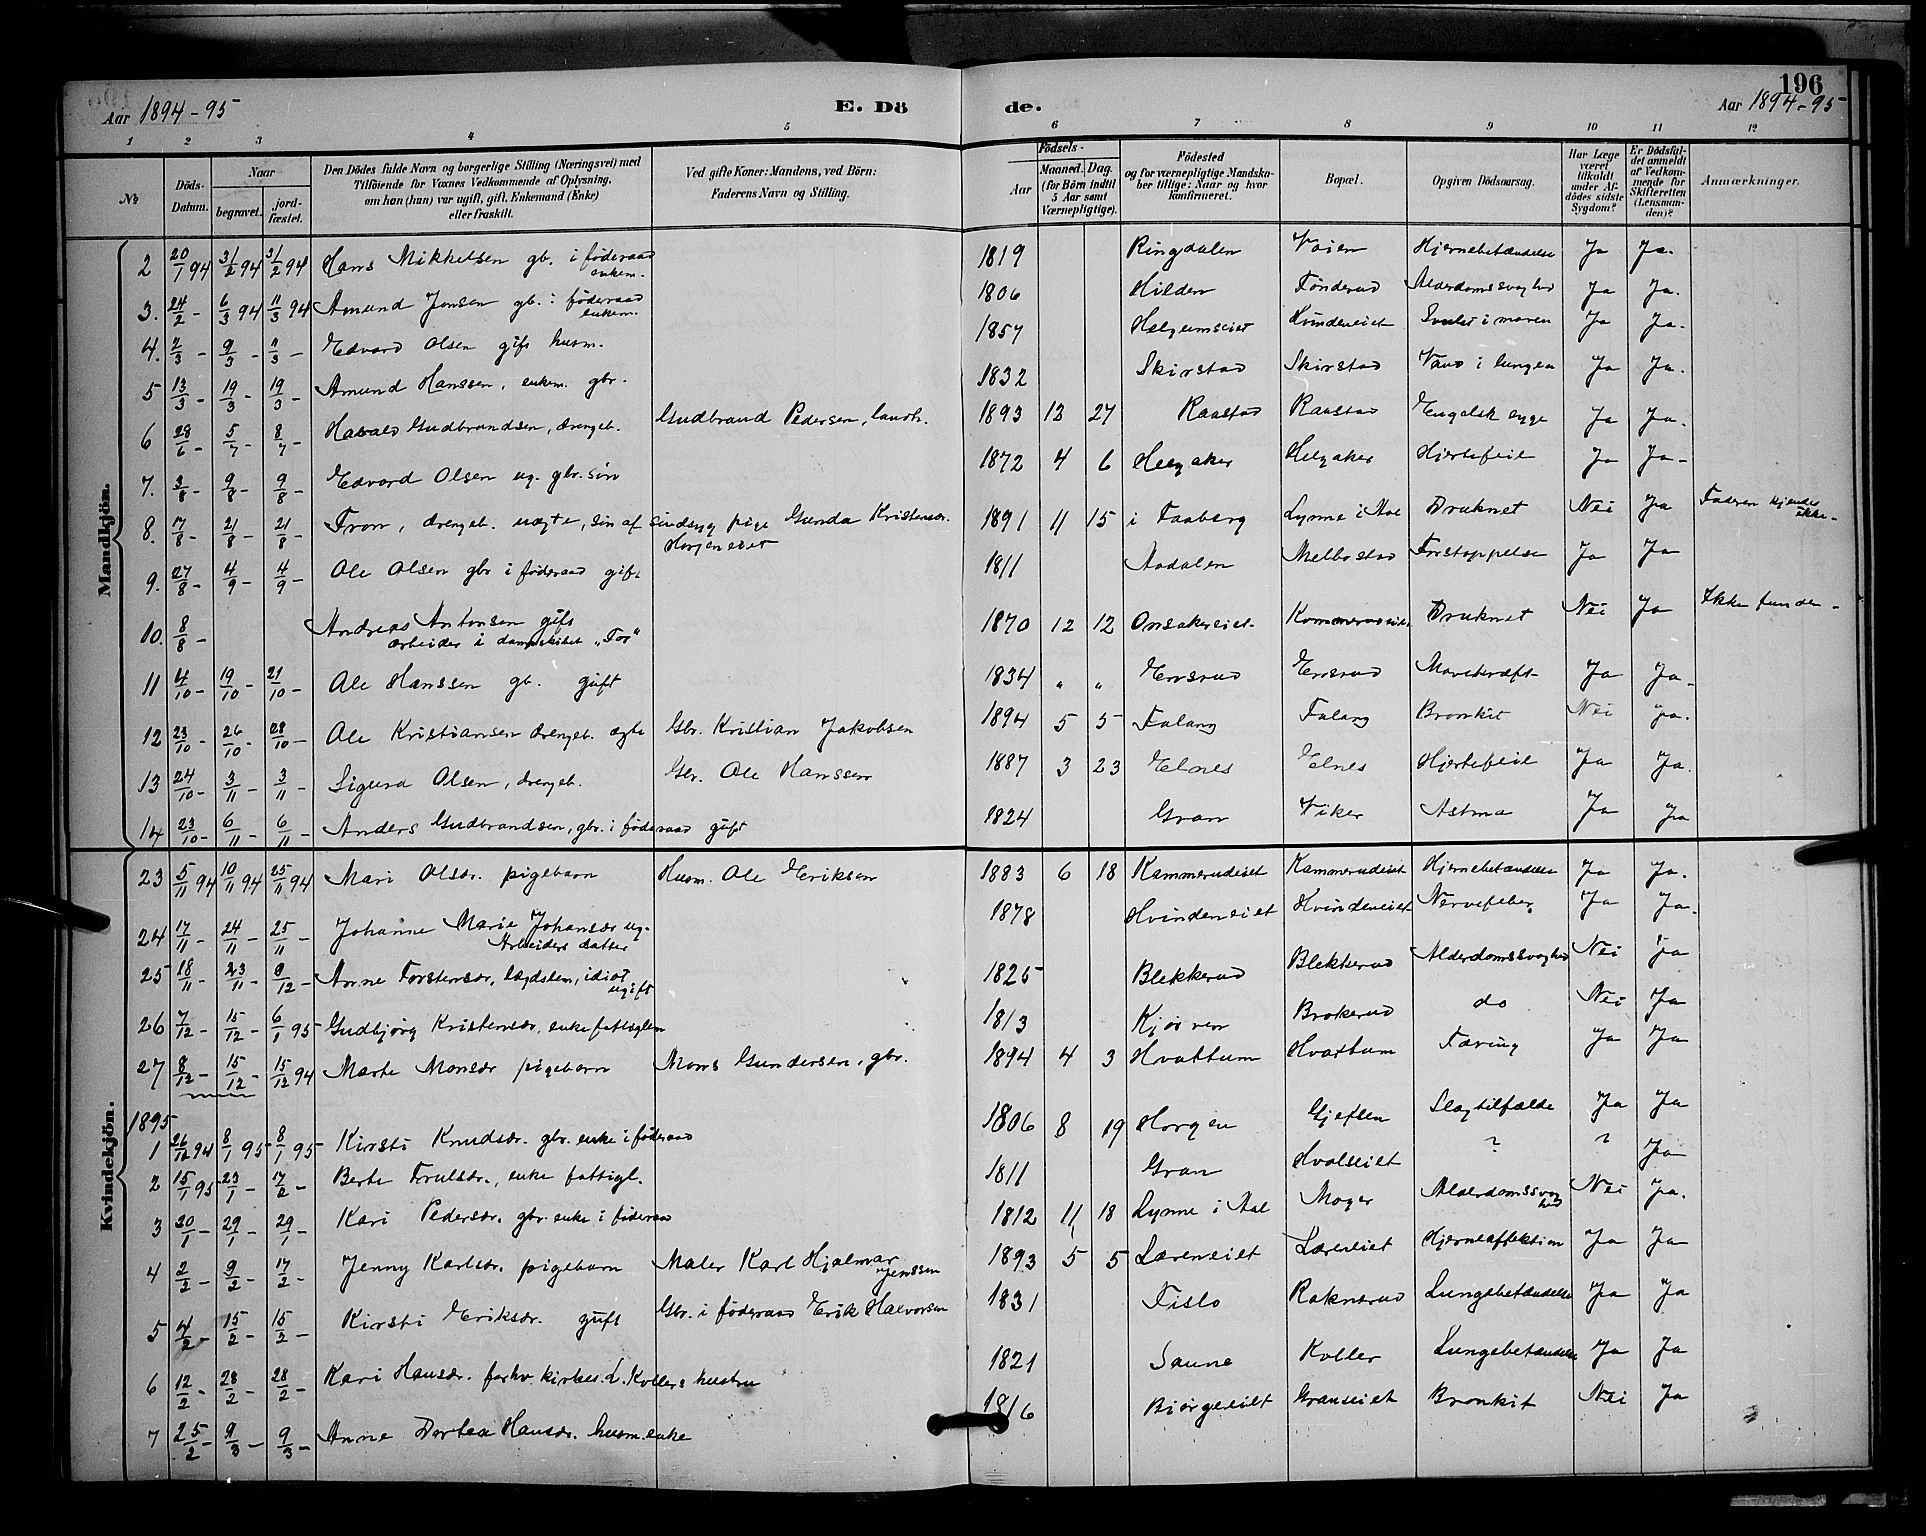 196
Aar 1894-95 E. Dö de. Aar 1894-95
1 2 3 4 5 6 7 8 9 10 11 12
No. Döds-Datum. Naar begravet. jordfæstet. Den Dödes fulde Navn og borgerlige Stilling (Næringsvei) med Tilföiende for Voxnes Vedkommende af Oplysning, om han (hun) var ugift, gift, Enkemand (Enke) eller fraskilt. Ved gifte Koner: Mandens, ved Börn: Faderens Navn og Stilling. Födsels- Aar Maaned. Dag. (for Börn indtil 5 Aar samt Værnepligtige). Födested og for værnepligtige Mandskaber tillige: Naar og hvor konfirmeret. Bopæl. Opgiven Dödsaarsag. Har Læge været tilkaldt under Afdödes sidste Sygdom? Er Dödsfaldet anmeldt af Vedkommende for Skifteretten (Lensmanden)? Anmærkninger.
Mandkjön.
2 20/1 94 31/2 94 31/2 94 Hans Mikkelsen gb. i föderaad enkem. 1819 Ringdalen Vöien Hjernebetændelse Ja Ja.
3. 24/2 - 6/3 94 11/3 94 Amund Jonsen gb. i föderaad enkem. 1806 Hilden Tönderud Alderdomssvaghed Ja Ja.
4. 2/3 - 9/3 - 11/3 - Edvard Olsen gift husm. 1857 Helgumseiet Hvindeneiet i maven Ja Ja.
5 13/3 - 19/3 - 19/3 - Amund Hanssen, enkem. gbr. 1832 Skirstad Skirstad Vand i lungen Ja Ja.
6 28/6 - 5/7 - 8/7 - Harald Gudbrandsen, drengeb. Gudbrand Pedersen, landh. 1893 12 27 Raastad Raastad Engelsk syge Ja Ja.
7. 3/8 - 9/8 - 9/8 - Edvard Olsen ug. gbr. sön 1872 4 6 Helgaker Helgaker Hjertefeil Ja Ja-
8. 17/8 - 21/8 - 21/8 - Tron, drengeb. uægte, sön af sindsyg pige Gunda Kristensdr. Horgeneiet 1891 11 15 i Faaberg Lynne i Aal Druknet Nei Ja Faderen kjendes ikke-
9. 27/8 - 4/9 - 4/9 - Ole Olsen gbr i föderaad gift 1811 Aadalen Melbostad Forstoppelse Ja Ja
10. 8/8 - Andreas Antonsen gift arbeider i dampskibet "Tor" 1870 12 12 Onsakereiet Kammerudeiet Druknet Nei Ja Ikke funden-
11 4/10 - 19/10 - 21/10 - Ole Hanssen gb. gift 1834 " " Ensrud Ensrud Mavekræft Ja Ja-
12 23/10 - 26/10 - 28/10 - Ole Kristiansen drengeb. ægte Gbr. Kristian Jakobsen 1894 5 5 Falang Falang Bronkit Nei Ja.
13 24/10 - 3/11 - 3/11 - Sigurd Olsen, drengeb. Gbr. Ole Hanssen 1887 3 23 Elnes Elnes Hjertefeil Ja Ja.
14 23/10 - 6/11 - 6/11 - Anders Gudbrandsen, gbr. i föderaad gift 1824 Gran Viker Astma Ja Ja
Kvindekjön.
23 5/11 94 10/11 94 25/11 94 Mari Olsdr. pigebarn Husm. Ole Eriksen 1883 6 18 Kammerudeiet Kammerudeiet Hjernebetændelse Ja Ja.
24 17/11 - 24/11 - 25/11 - Johanne Marie Johansdr ug. Arbeiders datter 1878 Hvindeneiet Hvindeneiet Nervefeber Ja Ja.
25 18/11 - 23/11 - 9/12 - Anne Torstensdr, lægdslem, idiot ugift 1825 Blekkerud Blekkerud Alderdomssvaghed Nei Ja
26 7/12 - 15/12 - 6/1 95 Gudbjörg Kristensdr. enke fattiglem 1813 Kjörven Brakerud do Nei Ja
27 8/12 - 15/12 - 15/12 94 Marte Monsdr pigebarn Mons Gundersen, gbr. 1894 4 3 Hvattum Hvattum Tæring Ja Ja
1895
1 26/12 94 8/1 95 8/1 95 Kirsti Knudsdr. gbr. enke i föderaad 1806 8 19 Horgen Gjeflen Slagtilfælde Ja Ja
2 15/1 95 23/1 - 17/2 - Berte Trulsdr., enke fattigl. 1811 Gran Hvalseiet ? ? Ja
3 20/1 - 29/1 - 29/1 - Kari Pedersdr. gbr. enke i föderaad 1812 11 18 Lynne i Aal Moger Alderdomssvaghed Nei Ja.
4 2/2 - 9/2 - 17/2 - Jenny Karlsdr. pigebarn Maler Karl Hjalmar Jenssen 1893 5 5 Læreneiet Læreneiet Hjerneaffektion Ja Ja
5 4/2 - 15/2 - 15/2 - Kirsti Eriksdr. gift Gbr. i föderaad Erik Halvorsen 1831 Tislo Raknerud Lungebetændelse Ja Ja
6 12/2 - 28/2 - 28/2 - Kari Hansdr. forhv. kirkes. L. Kollers hustru 1821 Saune Koller Lungebetændelse Ja Ja
7 25/2 - 9/3 - 9/3 - Anne Dortea Hansdr. husm. enke 1816 Biörgeeiet Granseiet Bronkit Nei Ja